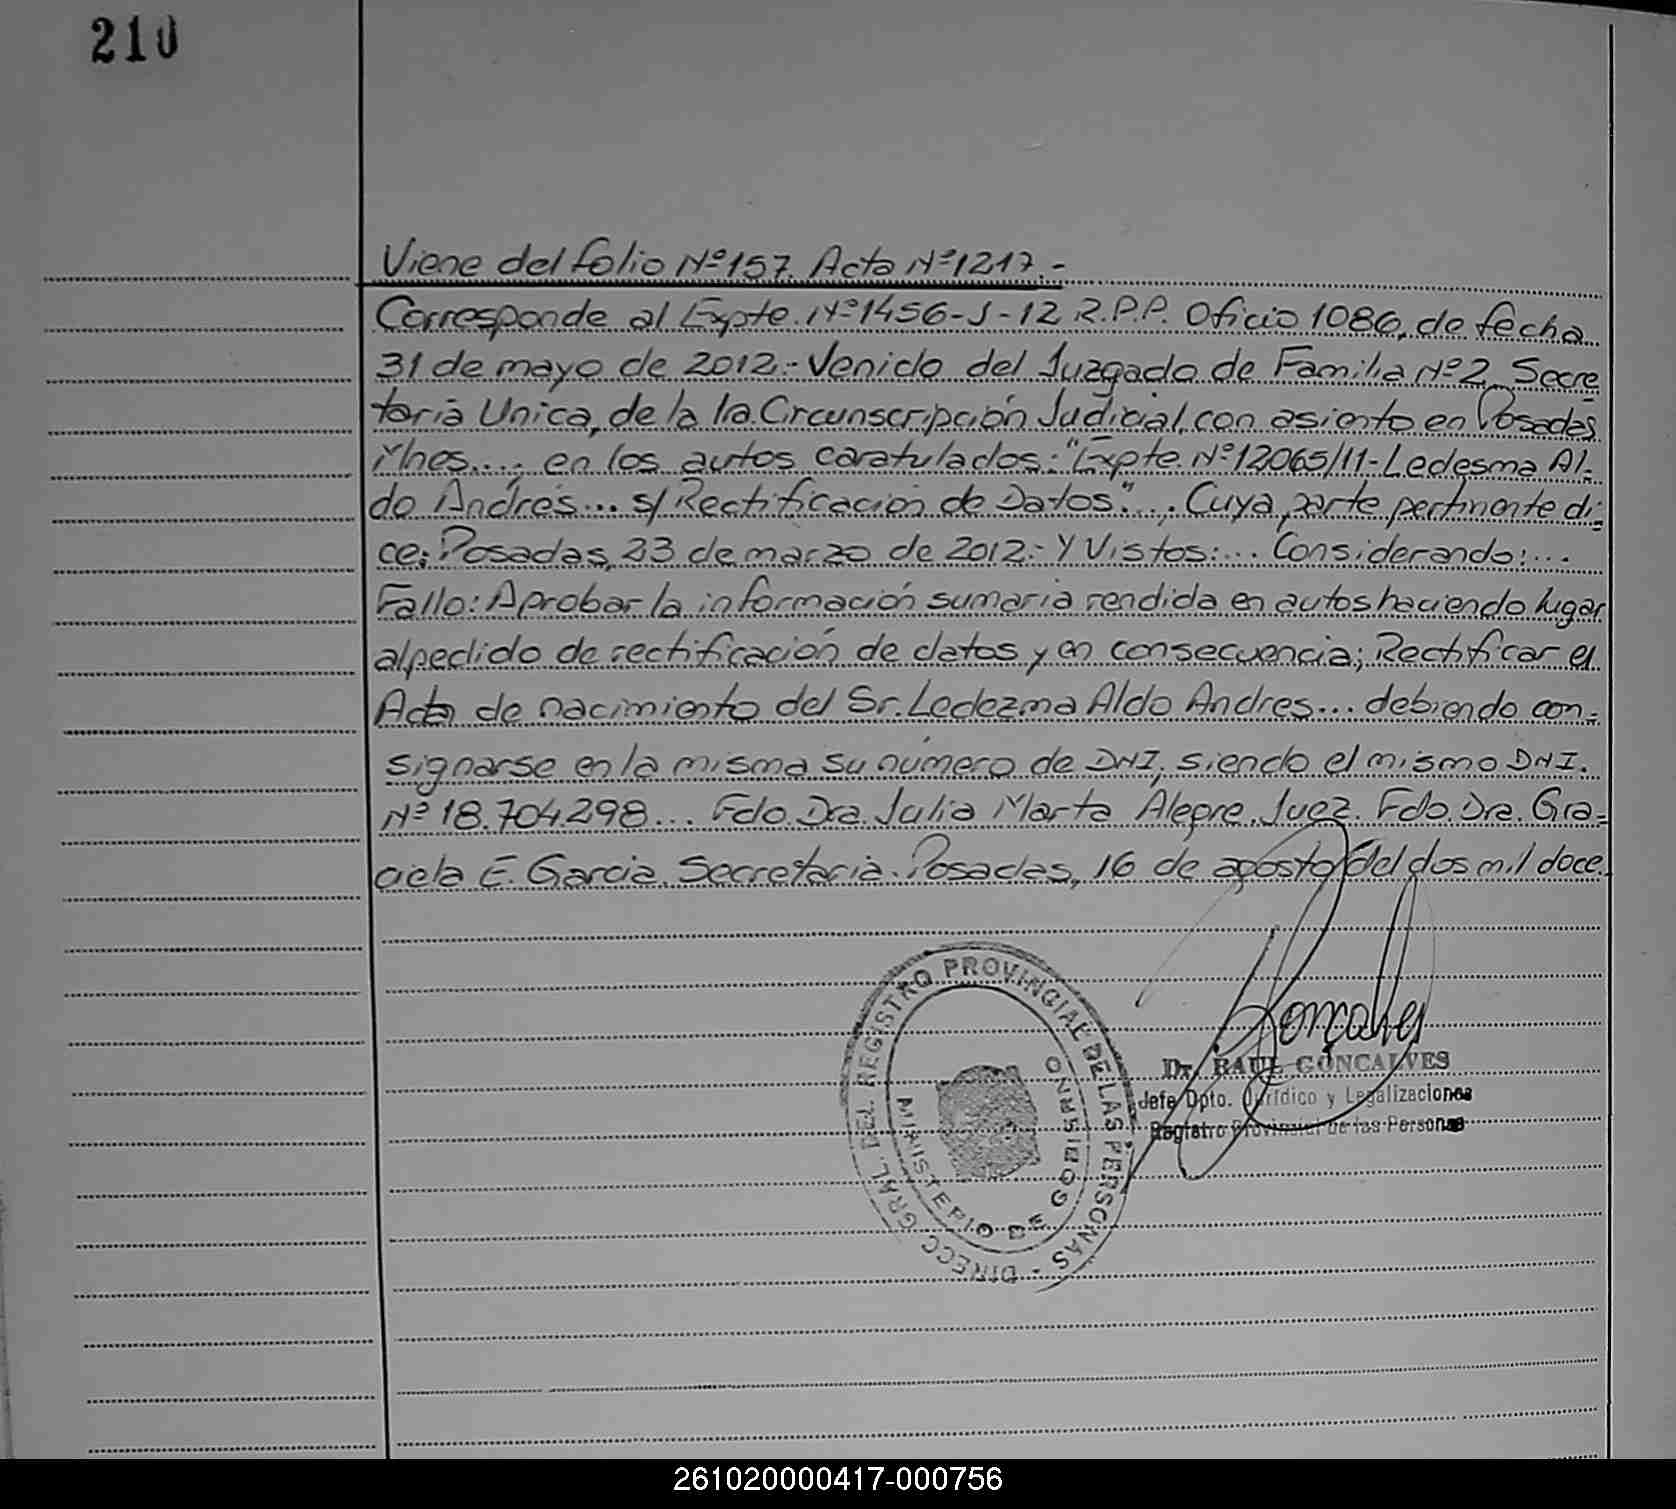 210
Viene del folio Nº157. Acta Nº1217.-
Corresponde al Expte. Nº1456-J-12 R.P.P. Oficio 1086, de fecha
31 de mayo de 2012.- Venido del Juzgado de Familia Nº2, Secre
taria Unica, de la 1ra. Circunscripción Judicial, con asiento en Posadas
Mnes...; en los autos caratulados: "Expte. Nº12065/11-Ledesma Al-
do Andrés... s/ Rectificación de Datos"...; Cuya parte pertinente di-
ce: Posadas, 23 de marzo de 2012.- Y Vistos:... Considerando:...
Fallo: Aprobar la información sumaria rendida en autos haciendo lugar
al pedido de rectificación de datos y en consecuencia; Rectificar el
Acta de nacimiento del Sr. Ledezma Aldo Andres... debiendo con-
signarse en la misma su número de DNI, siendo el mismo DNI.
Nº 18.704.298... Fdo. Dra. Julia Marta Alegre. Juez. Fdo. Dra. Gra-
ciela E. Garcia. Secretaria. Posadas, 16 de agosto del dos mil doce.
DIRECC. GRAL. DEL REGISTRO PROVINCIAL DE LAS PERSONAS
MINISTERIO DE GOBIERNO
Goncalves
Dr. RAUL GONCALVES
Jefe Dpto. Jurídico y Legalizaciones
Registro Provincial de las Personas
261020000417-000756